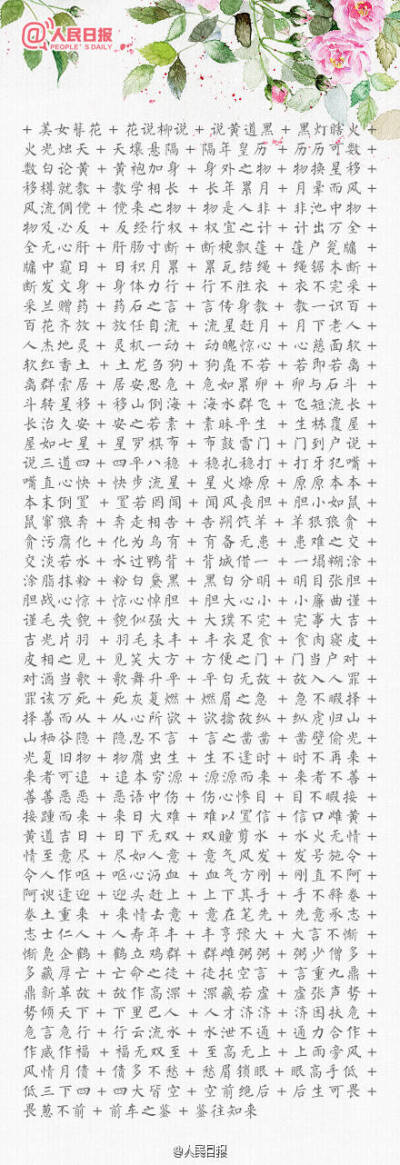 人民日报
PEOPLE'S DAILY
+ 美女簪花 + 花说柳说 + 说黄道黑 + 黑灯瞎火 +
火光烛天 + 天壤悬隔 + 隔年皇历 + 历历可数 +
数白论黄 + 黄袍加身 + 身外之物 + 物换星移 +
移樽就教 + 教学相长 + 长年累月 + 月晕而风 +
风流倜傥 + 傥来之物 + 物是人非 + 非池中物 +
物及必反 + 反经行权 + 权宜之计 + 计出万全 +
全无心肝 + 肝肠寸断 + 断梗飘蓬 + 蓬户瓮牖 +
牖中窥日 + 日积月累 + 累瓦结绳 + 绳锯木断 +
断发文身 + 身体力行 + 行不胜衣 + 衣不完采 +
采兰赠药 + 药石之言 + 言传身教 + 教一识百 +
百花齐放 + 放任自流 + 流星赶月 + 月下老人 +
人杰地灵 + 灵机一动 + 动魄惊心 + 心慈面软 +
软红香土 + 土龙刍狗 + 狗彘不若 + 若即若离 +
离群索居 + 居安思危 + 危如累卵 + 卵与石斗 +
斗转星移 + 移山倒海 + 海水群飞 + 飞短流长 +
长治久安 + 安之若素 + 素昧平生 + 生栋覆屋 +
屋如七星 + 星罗棋布 + 布鼓雷门 + 门到户说 +
说三道四 + 四平八稳 + 稳扎稳打 + 打牙犯嘴 +
嘴直心快 + 快步流星 + 星火燎原 + 原原本本 +
本末倒置 + 置若罔闻 + 闻风丧胆 + 胆小如鼠 +
鼠窜狼奔 + 奔走相告 + 告朔饩羊 + 羊狠狼贪 +
贪污腐化 + 化为乌有 + 有备无患 + 患难之交 +
交淡若水 + 水过鸭背 + 背城借一 + 一塌糊涂 +
涂脂抹粉 + 粉白黛黑 + 黑白分明 + 明目张胆 +
胆战心惊 + 惊心悼胆 + 胆大心小 + 小廉曲谨 +
谨毛失貌 + 貌似强大 + 大璞不完 + 完事大吉 +
吉光片羽 + 羽毛未丰 + 丰衣足食 + 食肉寝皮 +
皮相之见 + 见笑大方 + 方便之门 + 门当户对 +
对酒当歌 + 歌舞升平 + 平白无故 + 故入人罪 +
罪该万死 + 死灰复燃 + 燃眉之急 + 急不暇择 +
择善而从 + 从心所欲 + 欲擒故纵 + 纵虎归山 +
山栖谷隐 + 隐忍不言 + 言之凿凿 + 凿壁偷光 +
光复旧物 + 物腐虫生 + 生不逢时 + 时不再来 +
来者可追 + 追本穷源 + 源源而来 + 来者不善 +
善善恶恶 + 恶语中伤 + 伤心惨目 + 目不暇接 +
接踵而来 + 来日大难 + 难以置信 + 信口雌黄 +
黄道吉日 + 日下无双 + 双瞳剪水 + 水火无情 +
情至意尽 + 尽如人意 + 意气风发 + 发号施令 +
令人作呕 + 呕心沥血 + 血气方刚 + 刚直不阿 +
阿谀逢迎 + 迎头赶上 + 上下其手 + 手不释卷 +
卷土重来 + 来情去意 + 意在笔先 + 先意承志 +
志士仁人 + 人寿年丰 + 丰亨豫大 + 大言不惭 +
惭凫企鹤 + 鹤立鸡群 + 群雌粥粥 + 粥少僧多 +
多藏厚亡 + 亡命之徒 + 徒托空言 + 言重九鼎 +
鼎新革故 + 故作高深 + 深藏若虚 + 虚张声势 +
势倾天下 + 下里巴人 + 人才济济 + 济困扶危 +
危言危行 + 行云流水 + 水泄不通 + 通力合作 +
作威作福 + 福无双至 + 至高无上 + 上雨旁风 +
风情月债 + 债多不愁 + 愁眉锁眼 + 眼高手低 +
低三下四 + 四大皆空 + 空前绝后 + 后生可畏 +
畏葸不前 + 前车之鉴 + 鉴往知来
@人民日报